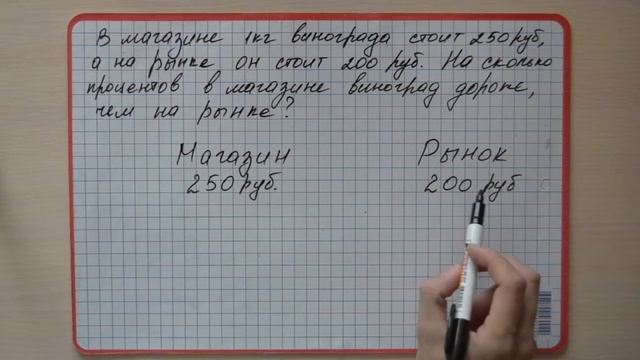 В магазине 1кг винограда стоит 250руб,
а на рынке он стоит 200 руб. На сколько
процентов в магазине виноград дороже,
чем на рынке?
Магазин Рынок
250руб. 200 руб